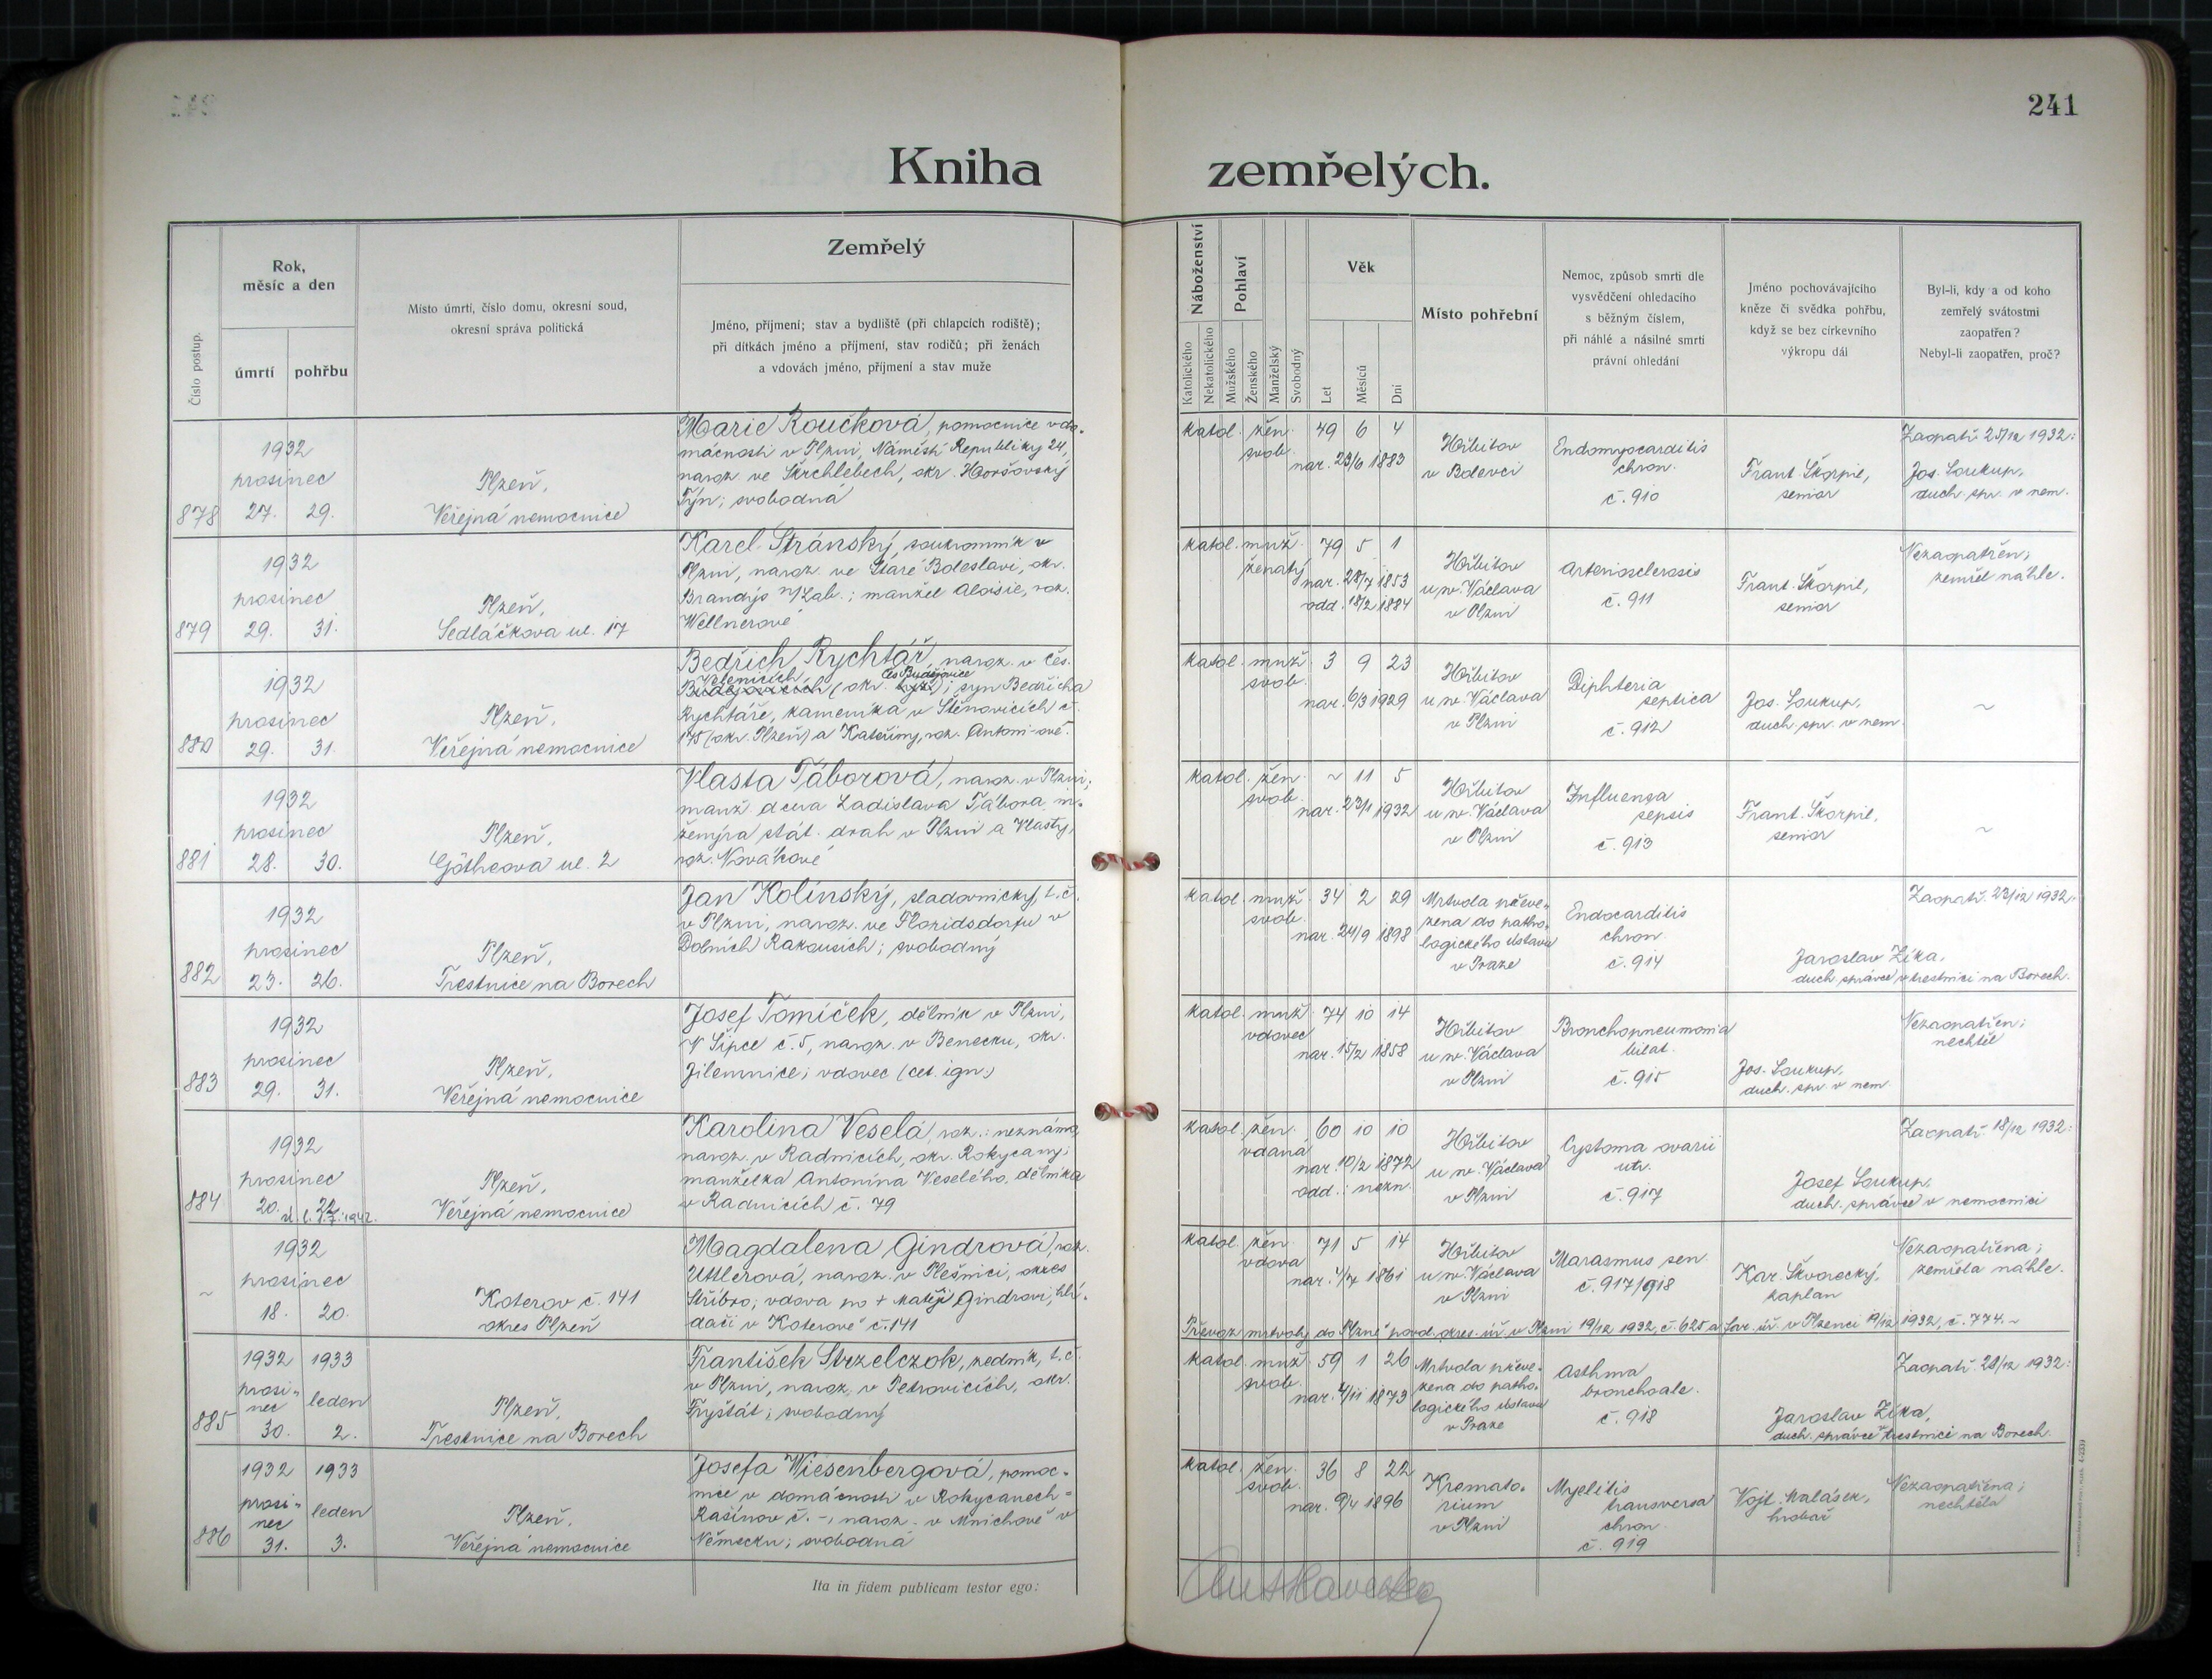 241
Kniha zemřelých.
Číslo postup.
Rok,
měsíc a den
úmrtí
pohřbu
Místo úmrtí, číslo domu, okresní soud,
okresní správa politická
Zemřelý
Jméno, příjmení; stav a bydliště (při chlapcích rodiště);
při dítkách jméno a příjmení, stav rodičů; při ženách
a vdovách jméno, příjmení a stav muže
Náboženství
Katolického
Nekatolického
Pohlaví
Mužského
Ženského
Manželský
Svobodný
Věk
Let
Měsíců
Dní
Místo pohřební
Nemoc, způsob smrti dle
vysvědčení ohledacího
s běžným číslem,
při náhlé a násilné smrti
právní ohledání
Jméno pochovávajícího
kněze či svědka pohřbu,
když se bez církevního
výkropu dál
Byl-li, kdy a od koho
zemřelý svátostmi
zaopatřen?
Nebyl-li zaopatřen, proč?
878
1932
prosinec
27. 29.
Plzeň,
Veřejná nemocnice
Marie Roučková, pomocnice v do-
mácnosti v Plzni, Náměstí Republiky 24,
naroz. ve Skrchlebech, okr. Horšovský
Týn; svobodná
katol. žen. 49 6 4
svob.
nar. 23/6 1883
Hřbitov
v Bolevci
Endomyocarditis
chron.
č. 910
Frant. Škorpil,
senior
Zaopatř. 25/12 1932:
Jos. Soukup,
duch. spr. v nem.
879
1932
prosinec
29. 31.
Plzeň,
Sedláčkova ul. 17
Karel Stránský, soukromník v
Plzni, naroz. ve Staré Boleslavi, okr.
Brandýs n/Lab.; manžel Aloisie, roz.
Wellnerové
katol. muž. 79 5 1
ženatý
nar. 28/7 1853
odd. 18/2 1884
Hřbitov
u sv. Václava
v Plzni
Arteriosclerosis
č. 911
Frant. Škorpil,
senior
Nezaopatřen;
zemřel náhle.
880
1932
prosinec
29. 31.
Plzeň,
Veřejná nemocnice
Bedřich Rychtář, naroz. v Čes.
Čs. Budějovice
Budějovicích (okr. ); syn Bedřicha
Rychtáře, kameníka v Štěnovicích č.
175 (okr. Plzeň) a Kateřiny, roz. Antoni-ové.
katol. muž. 3 9 23
svob.
nar. 6/3 1929
Hřbitov
u sv. Václava
v Plzni
Diphteria
septica
č. 912
Jos. Soukup,
duch. spr. v nem.
~
881
1932
prosinec
28. 30.
Plzeň,
Götheova ul. 2
Vlasta Táborová, naroz. v Plzni;
manž. dcera Ladislava Tábora, in-
ženýra stát. drah v Plzni a Vlasty,
roz. Novákové
katol. žen. ~ 11 5
svob.
nar. 23/1 1932
Hřbitov
u sv. Václava
v Plzni
Influenza
sepsis
č. 913
Frant. Škorpil,
senior
~
882
1932
prosinec
23. 26.
Plzeň,
Trestnice na Borech
Jan Kolínský, sladovnický, t. č.
v Plzni, naroz. ve Floridsdorfu v
Dolních Rakousích; svobodný
katol. muž. 34 2 29
svob.
nar. 24/9 1898
Mrtvola převe-
zena do patho-
logického ústavu
v Praze
Endocarditis
chron.
č. 914
Zaopatř. 23/12 1932:
Jaroslav Zíka,
duch. správce v trestnici na Borech.
883
1932
prosinec
29. 31.
Plzeň,
Veřejná nemocnice
Josef Tomíček, dělník v Plzni,
V Šipce č. 5, naroz. v Benecku, okr.
Jilemnice; vdovec (cet. ign.)
katol. muž. 74 10 14
vdovec
nar. 15/2 1858
Hřbitov
u sv. Václava
v Plzni
Bronchopneumonia
bilat.
č. 915
Jos. Soukup,
duch. spr. v nem.
Nezaopatřen;
nechtěl
884
1932
prosinec
20. 22.
Plzeň,
Veřejná nemocnice
Karolina Veselá, roz.: neznámo,
naroz. v Radnicích, okr. Rokycany;
manželka Antonína Veselého, dělníka
v Radnicích č. 79
katol. žen. 60 10 10
vdaná
nar. 10/2 1872
odd.: nezn.
Hřbitov
u sv. Václava
v Plzni
Cystoma ovarii
utr.
č. 917
Zaopatř. 18/12 1932:
Josef Soukup,
duch. správce v nemocnici
~
1932
prosinec
18. 20.
Koterov č. 141
okres Plzeň
Magdalena Gindrová, roz.
Uttlerová, naroz. v Plešnici, okres
Stříbro; vdova po + Matěji Gindrovi, hlí-
dači v Koterově č. 141
katol. žen. 71 5 14
vdova
nar. 4/7 1861
Hřbitov
u sv. Václava
v Plzni
Marasmus sen.
č. 917/918
Kar. Škvorecký,
kaplan
Nezaopatřena;
zemřela náhle.
Převoz mrtvoly do Plzně povol. okres. úř. v Plzni 19/12 1932, č. 625 a far. úř. v Plzenci 19/12 1932, č. 774. ~
885
1932 1933
prosi-
nec leden
30. 2.
Plzeň,
Trestnice na Borech
František Strzelczok, zedník, t. č.
v Plzni, naroz. v Petrovicích, okr.
Fryštát; svobodný
katol. muž. 59 1 26
svob.
nar. 4/11 1873
Mrtvola převe-
zena do patho-
logického ústavu
v Praze
Asthma
bronchoale.
č. 918
Zaopatř. 28/12 1932:
Jaroslav Zíka,
duch. správce v trestnici na Borech.
886
1932 1933
prosi-
nec leden
31. 3.
Plzeň,
Veřejná nemocnice
Josefa Wiesenbergová, pomoc-
nice v domácnosti v Rokycanech-
Rašínov č. -, naroz. v Mnichově v
Německu; svobodná
katol. žen. 36 8 22
svob.
nar. 9/4 1896
Kremato-
rium
v Plzni
Myelitis
transversa
chron.
č. 919
Vojt. Malásek,
hrobař
Nezaopatřena;
nechtěla
Ita in fidem publicam testor ego: